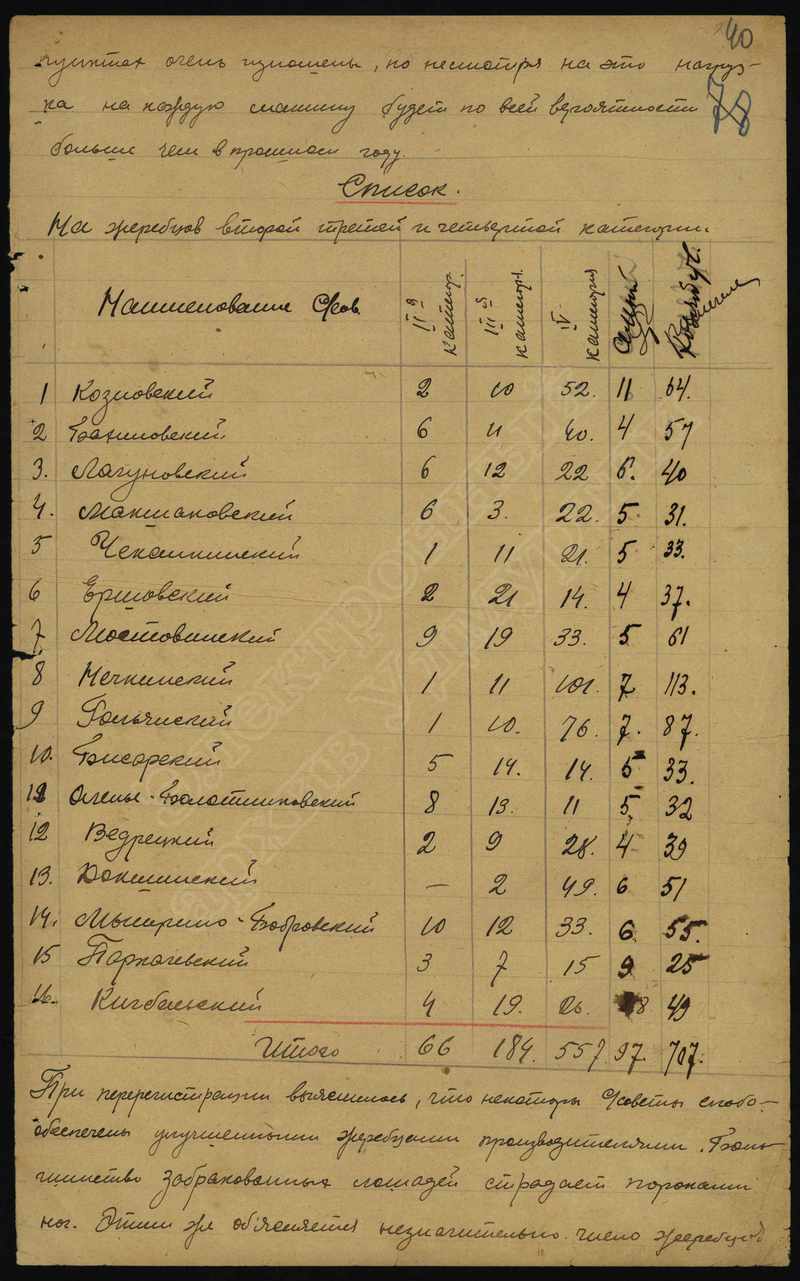 40
пунктах очень изношены, но несмотря на это нагруз-
ка на каждую машину будет по всей вероятности
78
больше чем в прошлом году.
Список.
На жеребцов второй третей и четвертой категории.
Наименование С/сов. II й категор. III й категор. IV категория
1 Козловский 2 10 52. 11 64.
2 6 11 40. 4 57
3. Лагуновский 6 12 22 6. 40
4. Макшаковский 6 3. 22. 5 31.
5 1 11 21. 5 33.
6 Ершовский 2 21 14. 4 37.
7 Мостовинский 9 19 33. 5 61
8 Нечкинский 1 11 101. 7 113.
9 Гольянский 1 10. 76. 7. 87.
10. Бисарский 5 14. 14. 5 33.
12 Оленье-Болотниковский 8 13. 11 5 32
12 Ведрецкий 2 9 28. 4 39
13. Докшинский — 2 49. 6 51
14. -Бобровский 10 12 33. 6 55.
15 Паркачевский 3 7 15 9 25
16. Кигбаевский 4 19. 26. 8 49
Итого 66 184. 557 97. 707.
При перерегистрации выяснилось, что некоторы С/советы слабо-
обеспечены улучшенными жеребцами производителями. Боль-
шинство забракованных лошадей страдает пороками
ног. Этим же обясняется незначительно число жеребцов